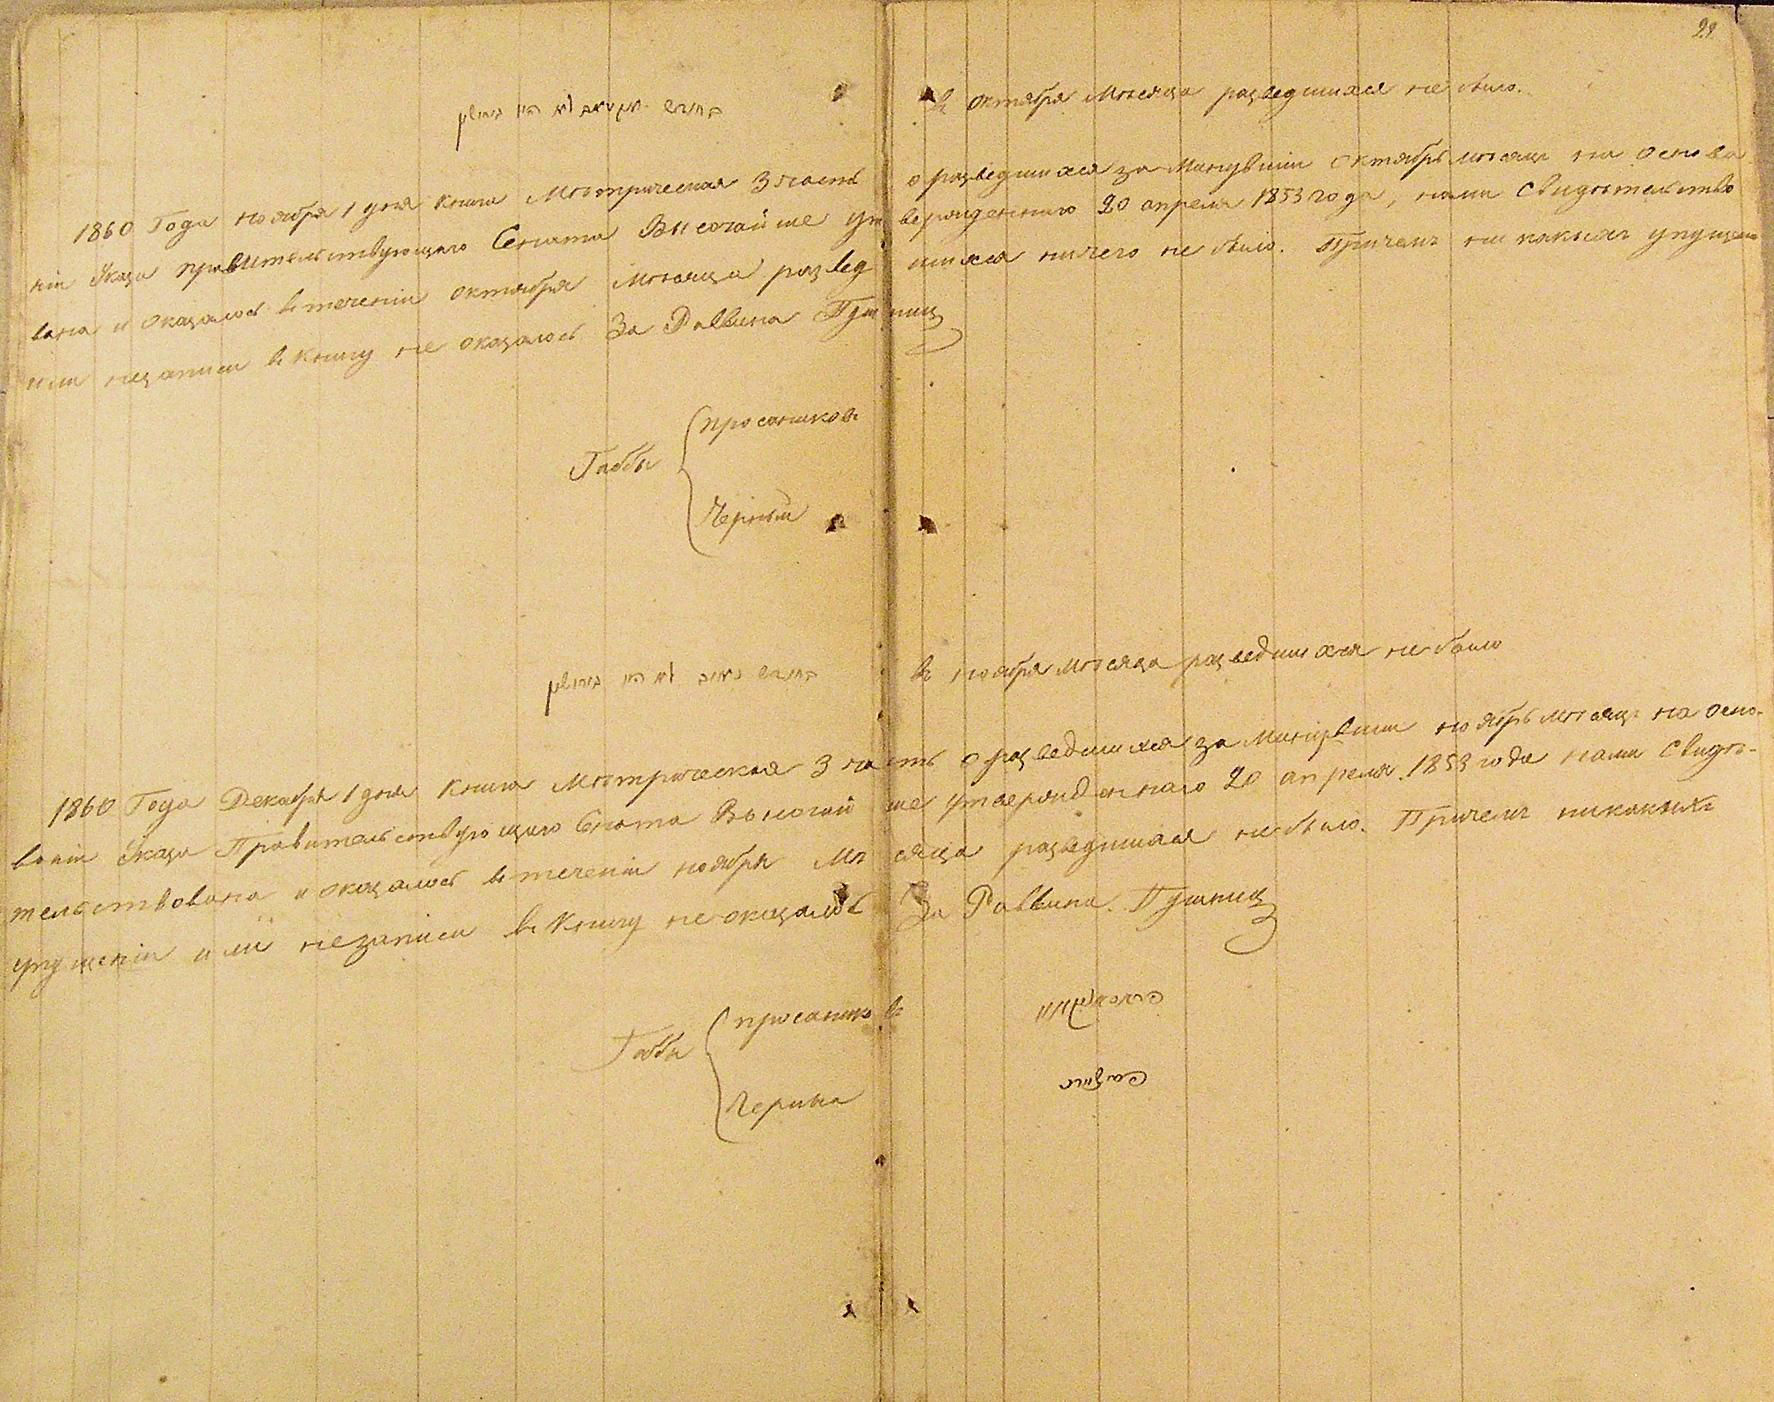 29
בחודש אקטאב לא היו גירושין
В октября Месяца разведшихся не было.
1860 Года ноября 1 дня книга Метрическая 3 часть о разведшихся за Минувший октябрь месяцъ на основа
ніи Указа Правительствующаго Сената Высочайше утвержденнаго 20 апреля 1853 года, нами Свидетельство
вана и оказалось в теченіи октября Месяца разведшихся ничего не было. Причемъ ни какихъ упущен
или незаписи в Книгу не оказалось За Раввина
Габбы
Просаников
Черный
בחודש נאיאב לא היו גירושין
В ноября месяца разведшихся не было
1860 Года Декабря 1 дня Книга Метрическая 3 часть о разведшихся за Минувший ноябрь месяцъ на осно-
ваніи Указа Правительствующаго Сената Высочайше утвержденнаго 20 апреля 1853 года нами Свиде-
тельствована и оказалось в теченіи ноября Месяца разведшихся не было. Причемъ никакихъ
упущеніи или незаписи в Книгу не оказалось За Раввина.
Габбы
Просаников